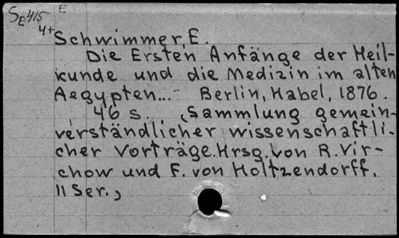 SE415 E
4+
Schwimmer, E.
Die Ersten Anfänge der Heil-
kunde und die Medizin im alten
Aegypten... Berlin, Habel, 1876.
46 s. (Sammlung gemein-
verständlicher wissenschaftli-
cher Vorträge. Hrsg. von R. Vir-
chow und F. von Holtzendorff.
11 Ser.,